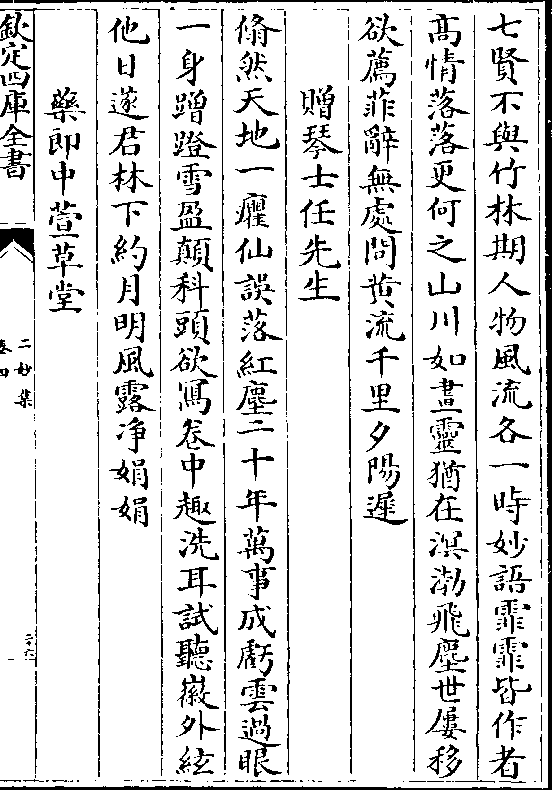 七賢不與竹林期人物風流各一時妙語霏霏皆作者
髙情落落更何之山川如畫靈猶在溟渤飛塵世屢移
欲薦菲辭無處問黄流千里夕陽遲
贈琴士任先生
翛然天地一癯仙誤落紅塵二十年萬事成虧雲過眼
一身蹭蹬雪盈顛科頭欲寫卷中趣洗耳試聽徽外絃
他日遂君林下約月明風露净娟娟
藥郎中萱草堂
欽定四庫全書
二妙集
卷四